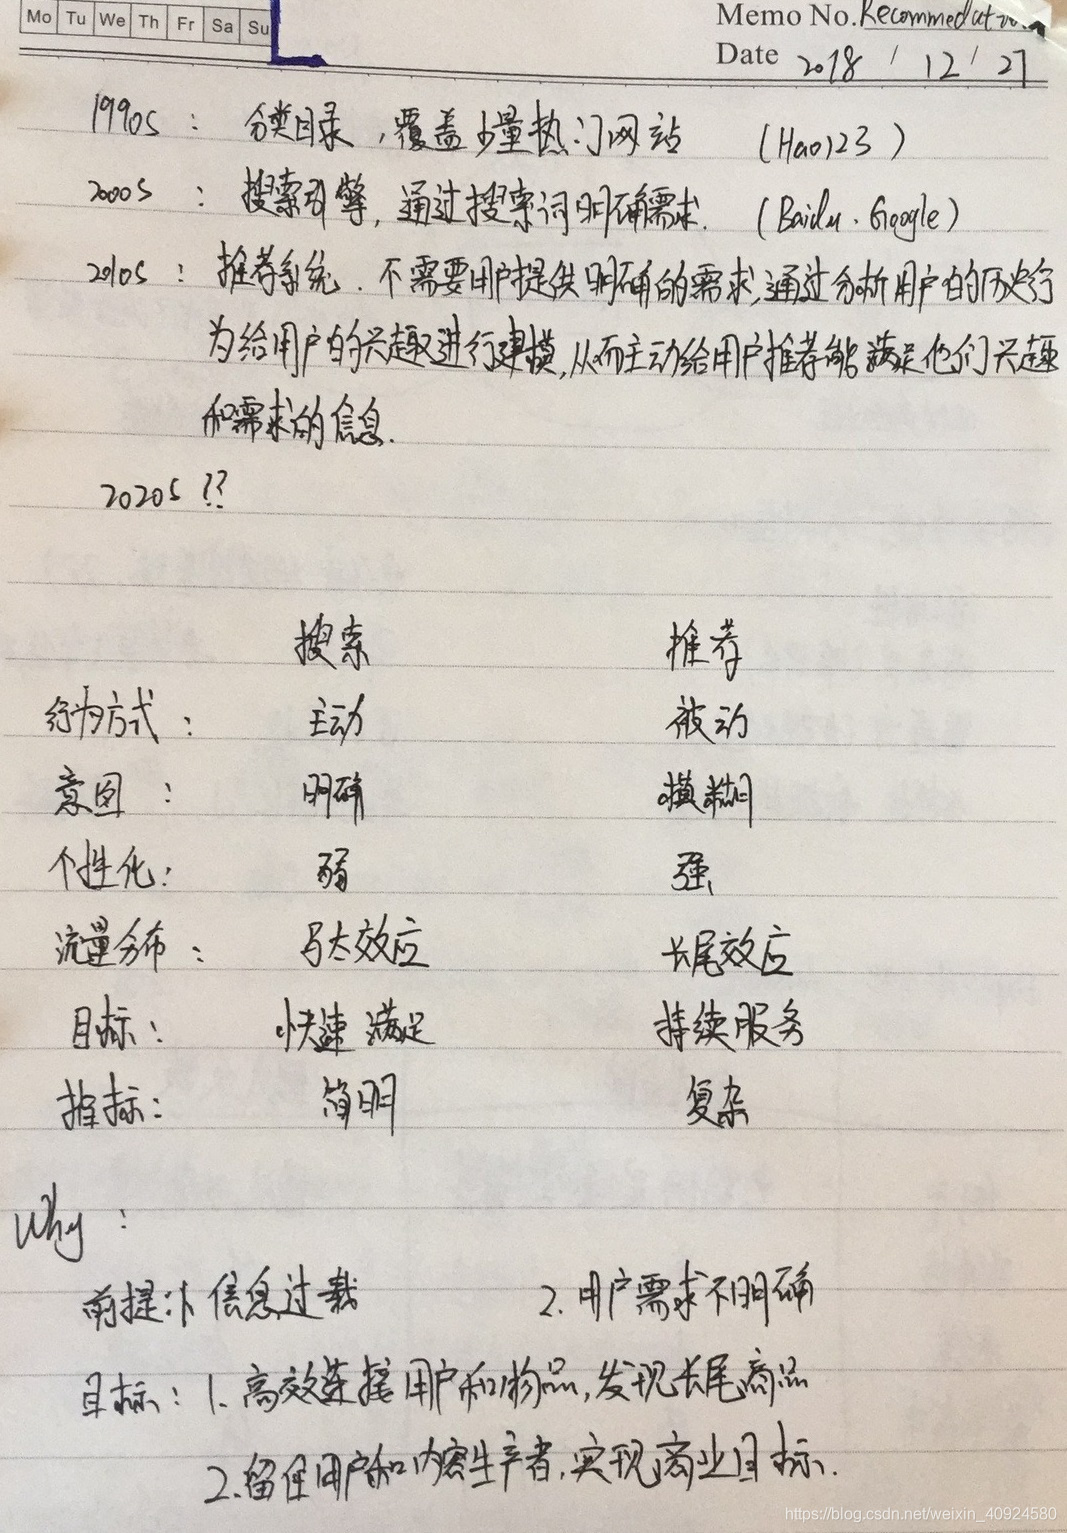 Mo Tu We Th Fr Sa Su
Memo No. Recommedation
Date 2018 / 12 / 27
1990s : 分类目录，覆盖少量热门网站 (Hao123)
2000s : 搜索引擎，通过搜索词明确需求. (Baidu. Google)
2010s : 推荐系统. 不需要用户提供明确的需求,通过分析用户的历史行
为给用户的兴趣进行建模,从而主动给用户推荐能满足他们兴趣
和需求的信息.
2020s ??
搜索 推荐
行为方式： 主动 被动
意图： 明确 模糊
个性化： 弱 强
流量分布： 马太效应 长尾效应
目标： 快速 满足 持续服务
指标： 简明 复杂
Why :
前提: 1. 信息过载 2. 用户需求不明确
目标： 1. 高效连接用户和物品,发现长尾商品
2. 留住用户和内容生产者,实现商业目标.
https://blog.csdn.net/weixin_40924580